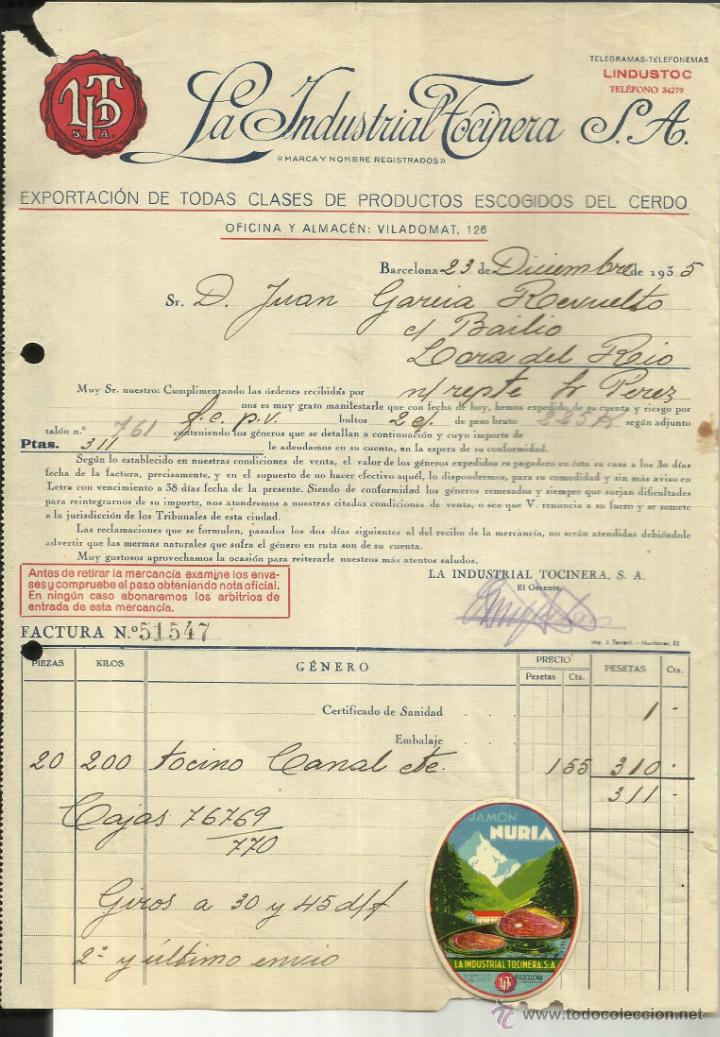 TELEGRAMAS-TELEFONEMAS
LINDUSTOC
TELÉFONO 34279
LIT
S. A.
La Industrial Tocinera S.A.
«MARCA Y NOMBRE REGISTRADOS»
EXPORTACIÓN DE TODAS CLASES DE PRODUCTOS ESCOGIDOS DEL CERDO
OFICINA Y ALMACÉN: VILADOMAT, 126
Barcelona 23 de Diciembre de 1935
Sr. D. Juan Garcia Revuelto
c/ Bailio
Lora del Rio
Muy Sr. nuestro: Cumplimentando las órdenes recibidas por n/ repte Sr Perez
nos es muy grato manifestarle que con fecha de hoy, hemos expedido de su cuenta y riesgo por
f.c. p.v. bultos 2 cj. de peso bruto 225 K según adjunto
talón n.º 761 conteniendo los géneros que se detallan a continuación y cuyo importe de
Ptas. 311 le adeudamos en su cuenta, en la espera de su conformidad.
Según lo establecido en nuestras condiciones de venta, el valor de los géneros expedidos es pagadero en ésta su casa a los 30 días
fecha de la factura, precisamente, y en el supuesto de no hacer efectivo aquél, lo dispondremos, para su comodidad y sin más aviso en
Letra con vencimiento a 38 días fecha de la presente. Siendo de conformidad los géneros remesados y siempre que surjan dificultades
para reintegrarnos de su importe, nos atendremos a nuestras citadas condiciones de venta, o sea que V. renuncia a su fuero y se somete
a la jurisdicción de los Tribunales de esta ciudad.
Las reclamaciones que se formulen, pasados los dos días siguientes al del recibo de la mercancía, no serán atendidas debiéndole
advertir que las mermas naturales que sufra el género en ruta son de su cuenta.
Muy gustosos aprovechamos la ocasión para reiterarle nuestros más atentos saludos.
Antes de retirar la mercancía examine los enva-
ses y compruebe el peso obteniendo nota oficial.
En ningún caso abonaremos los arbitrios de
entrada de esta mercancía.
LA INDUSTRIAL TOCINERA, S. A.
El Gerente,
FACTURA N.º 51547
Imp. J. Torrent. - Muntaner, 52
PIEZAS KILOS GÉNERO PRECIO Pesetas Cts. PESETAS Cts.
Certificado de Sanidad . . . 1 -
Embalaje . . .
20 200 tocino Canal cte. 155 310 -
311 -
Cajas 76769/770
Giros a 30 y 45 d/f
2º y último envio
JAMÓN
NURIA
LA INDUSTRIAL TOCINERA. S.A
BARCELONA
www.todocoleccion.net